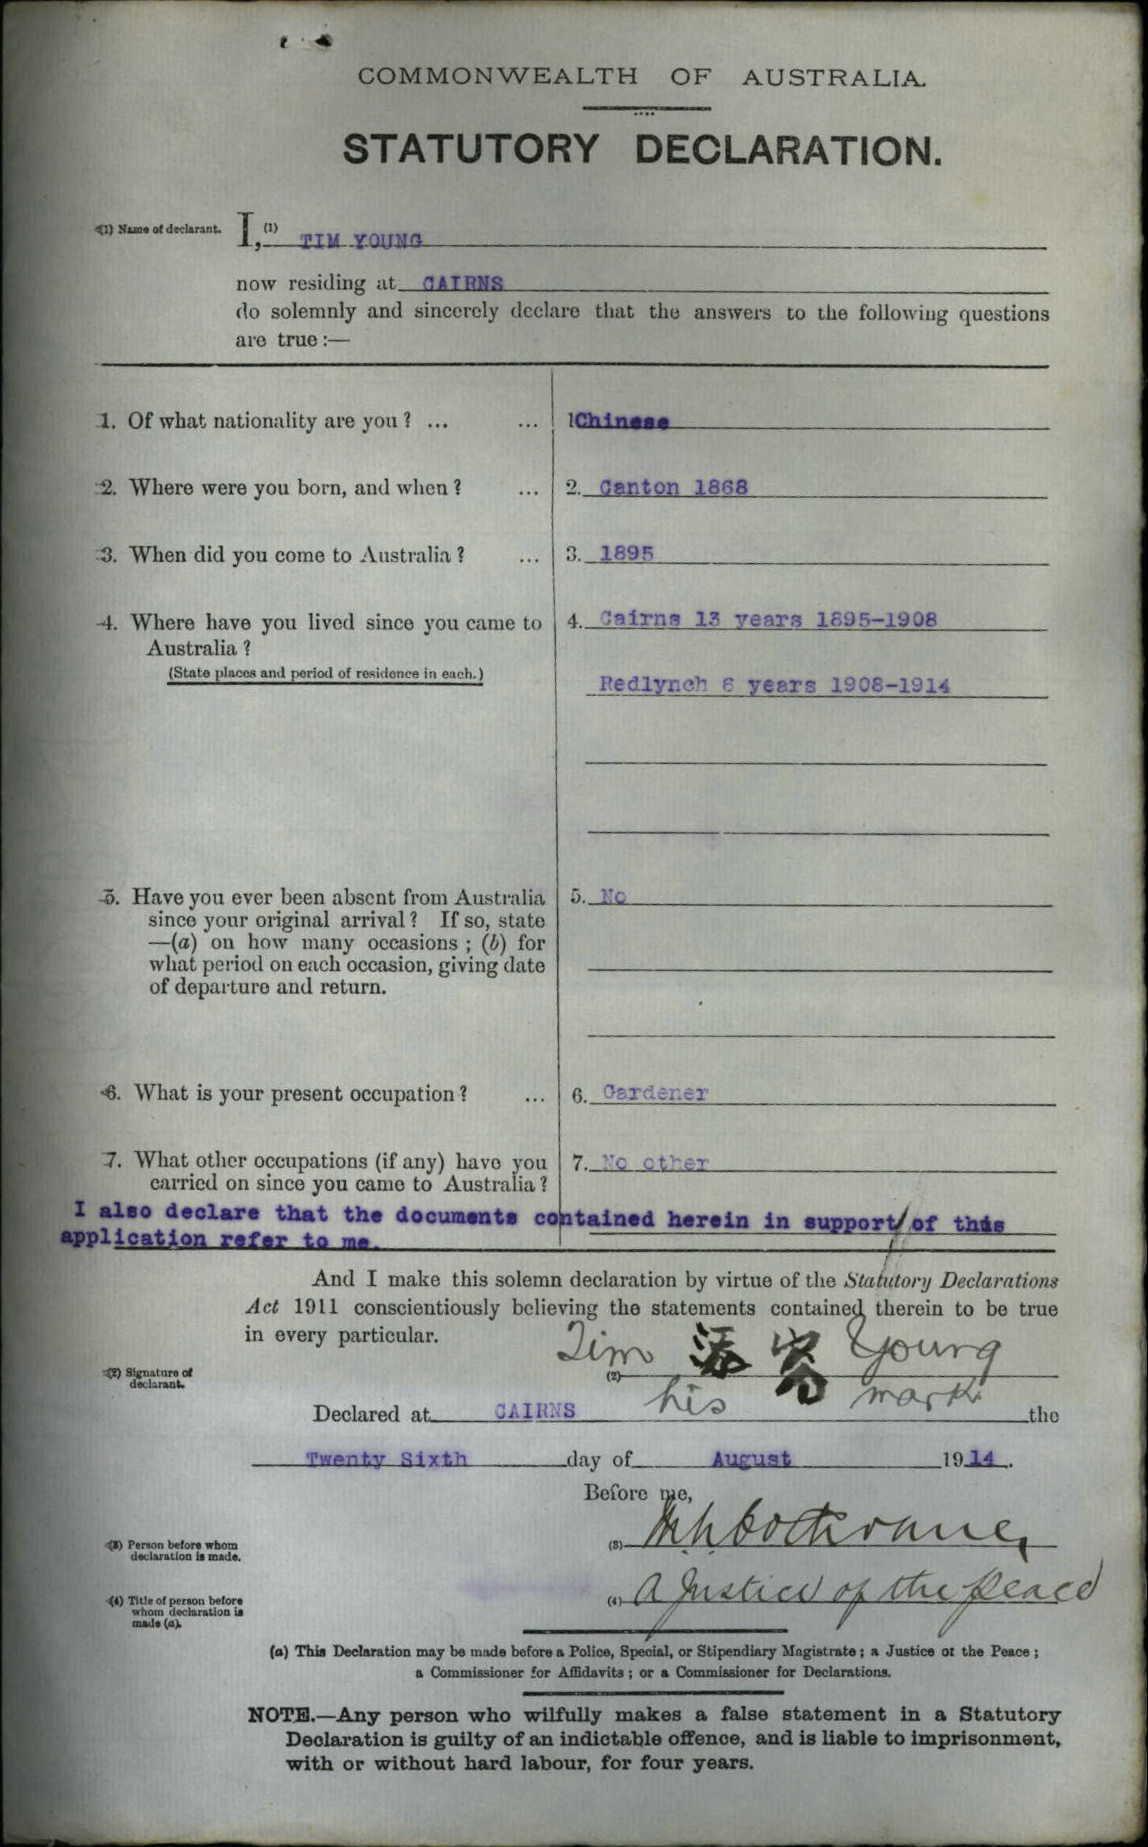 COMMONWEALTH OF AUSTRALIA.
STATUTORY DECLARATION.
(1) Name of declarant. I,(1) TIM YOUNG
now residing at CAIRNS
do solemnly and sincerely declare that the answers to the following questions
are true:—
1. Of what nationality are you? ... ... 1 Chinese
2. Where were you born, and when? ... 2. Canton 1868
3. When did you come to Australia? ... 3. 1895
4. Where have you lived since you came to 4. Cairns 13 years 1895-1908
Australia?
(State places and period of residence in each.) Redlynch 6 years 1908-1914
5. Have you ever been absent from Australia 5. No
since your original arrival? If so, state
—(a) on how many occasions; (b) for
what period on each occasion, giving date
of departure and return.
6. What is your present occupation? ... 6. Gardener
7. What other occupations (if any) have you 7. No other
carried on since you came to Australia?
I also declare that the documents contained herein in support of this
application refer to me.
And I make this solemn declaration by virtue of the Statutory Declarations
Act 1911 conscientiously believing the statements contained therein to be true
in every particular.
Tim 添 Young
(2) Signature of declarant. (2)
his mark
Declared at CAIRNS the
Twenty Sixth day of August 1914.
Before me,
(3) Person before whom declaration is made. (3) Cochrane,
(4) Title of person before whom declaration is made (a). (4) A Justice of the Peace
(a) This Declaration may be made before a Police, Special, or Stipendiary Magistrate; a Justice of the Peace;
a Commissioner for Affidavits; or a Commissioner for Declarations.
NOTE.—Any person who wilfully makes a false statement in a Statutory
Declaration is guilty of an indictable offence, and is liable to imprisonment,
with or without hard labour, for four years.